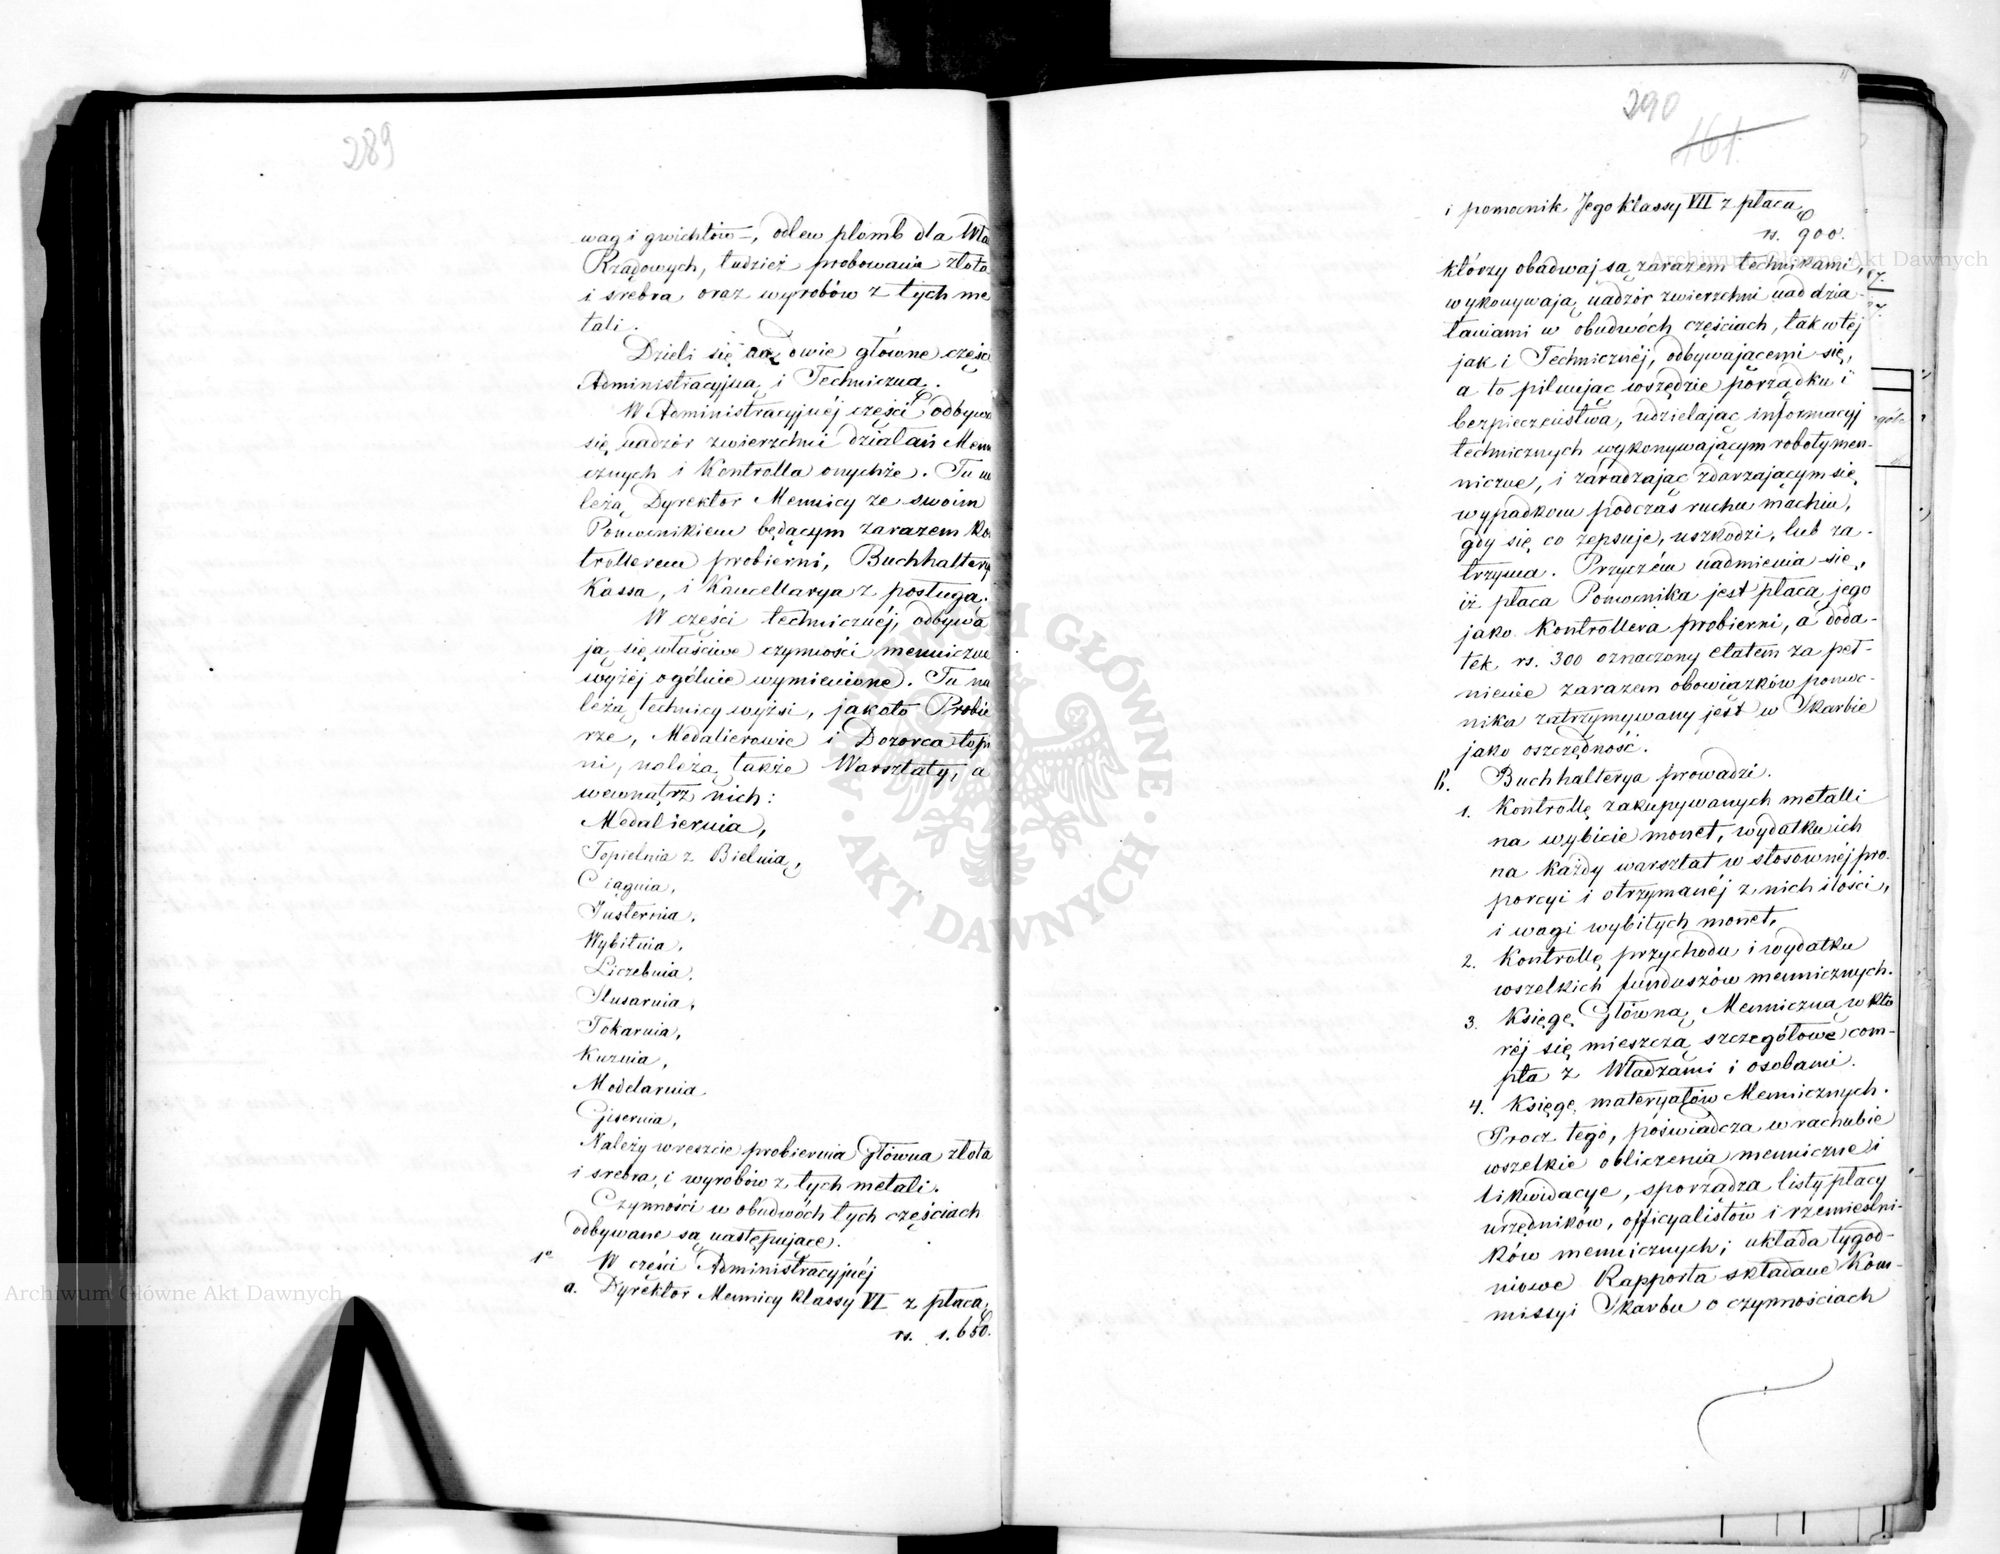 289
wag i gwichtów –, odlew plomb dla Wła
Rządowych, tudzież probowania złota
i srebra, oraz wyrobów z tych me
tali.
Dzieli się na dwie główne części
Administracyjną i Techniczną.
W Administracyjnéj części odbywa
się nadzór zwierzchni działań Menni
cznych i Kontrolla onychże. Tu na
leżą Dyrektor Mennicy ze swoim
Pomocnikiem będącym zarazem Kon
trollerem probierni, Buchhalterya
Kassa, i Kancellarya z posługą.
W części technicznéj, odbywa
ją się właściwe czynności mennicze
wyżej ogólnie wymienione. Tu na
leżą technicy wyżsi, jakoto Probie
rze, Medalierowie i Dozorca topi
ni, należą także Warsztaty, a
wewnątrz nich:
Medaliernia,
Topielnia z Bielnią,
Ciągnia,
Justernia,
Wybitnia,
Liczebnia,
Slusarnia,
Tokarnia,
Kuznia,
Modelarnia
Gisernia,
Należy wreszcie probiernia Główna złota
i srebra, i wyrobów z tych metali.
Czynności w obudwóch tych częściach
odbywane są następujące.
1° W części Administracyjnéj
a. Dyrektor Mennicy klassy VI z płacą
rs. 1.650.
290
161.
i pomocnik Jego klassy VII z płacą
rs. 900.
którzy obadwaj są zarazem technikami,
wykonywają nadzór zwierzchni nad dzia-
łaniami w obudwóch częściach, tak w téj
jak i Technicznéj, odbywającemi się,
a to pilnując wszędzie porządku i
bezpieczeństwa, udzielając informacyj
technicznych wykonywającym roboty men-
niczne, i zaradzając zdarzającym się
wypadkom podczas ruchu machin,
gdy się co zepsuje, uszkodzi, lub za-
trzyma. Przyczém nadmienia się,
iż płaca Pomocnika jest płacą jego
jako Kontrollera probierni, a doda-
tek rs. 300 oznaczony etatem za peł-
nienie zarazem obowiązków pomoc-
nika zatrzymywany jest w Skarbie
jako oszczędność.
B. Buchhalterya prowadzi.
1. Kontrollę zakupywanych metalli
na wybicie monet, wydatku ich
na każdy warsztat w stosownéj pro-
porcyi i otrzymanéj z nich ilości,
i wagi wybitych monet.
2. Kontrollę przychodu i wydatku
wszelkich funduszów mennicznych.
3. Księgę Główną Menniczną w któ
réj się mieszczą szczegółowe com-
pta z Władzami i osobami.
4. Księgę materyałów Mennicznych.
Procz tego, poświadcza w rachubie
wszelkie obliczenia menniczne i
likwidacye, sporządza listy płacy
urzędników, officyalistów i rzemieślni-
ków mennicznych; układa tygod-
niowe Rapporta składane Kom-
missyi Skarbu o czynnościach
ARCHIWUM GŁÓWNE AKT DAWNYCH
Archiwum Główne Akt Dawnych
Archiwum Główne Akt Dawnych